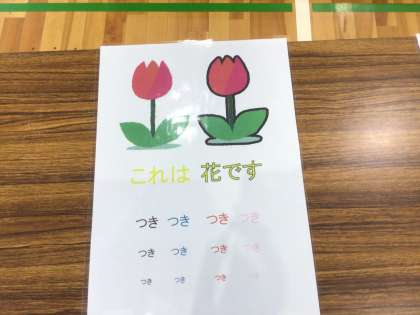 これは 花です
つき つき つき つき
つき つき つき つき
つき つき つき